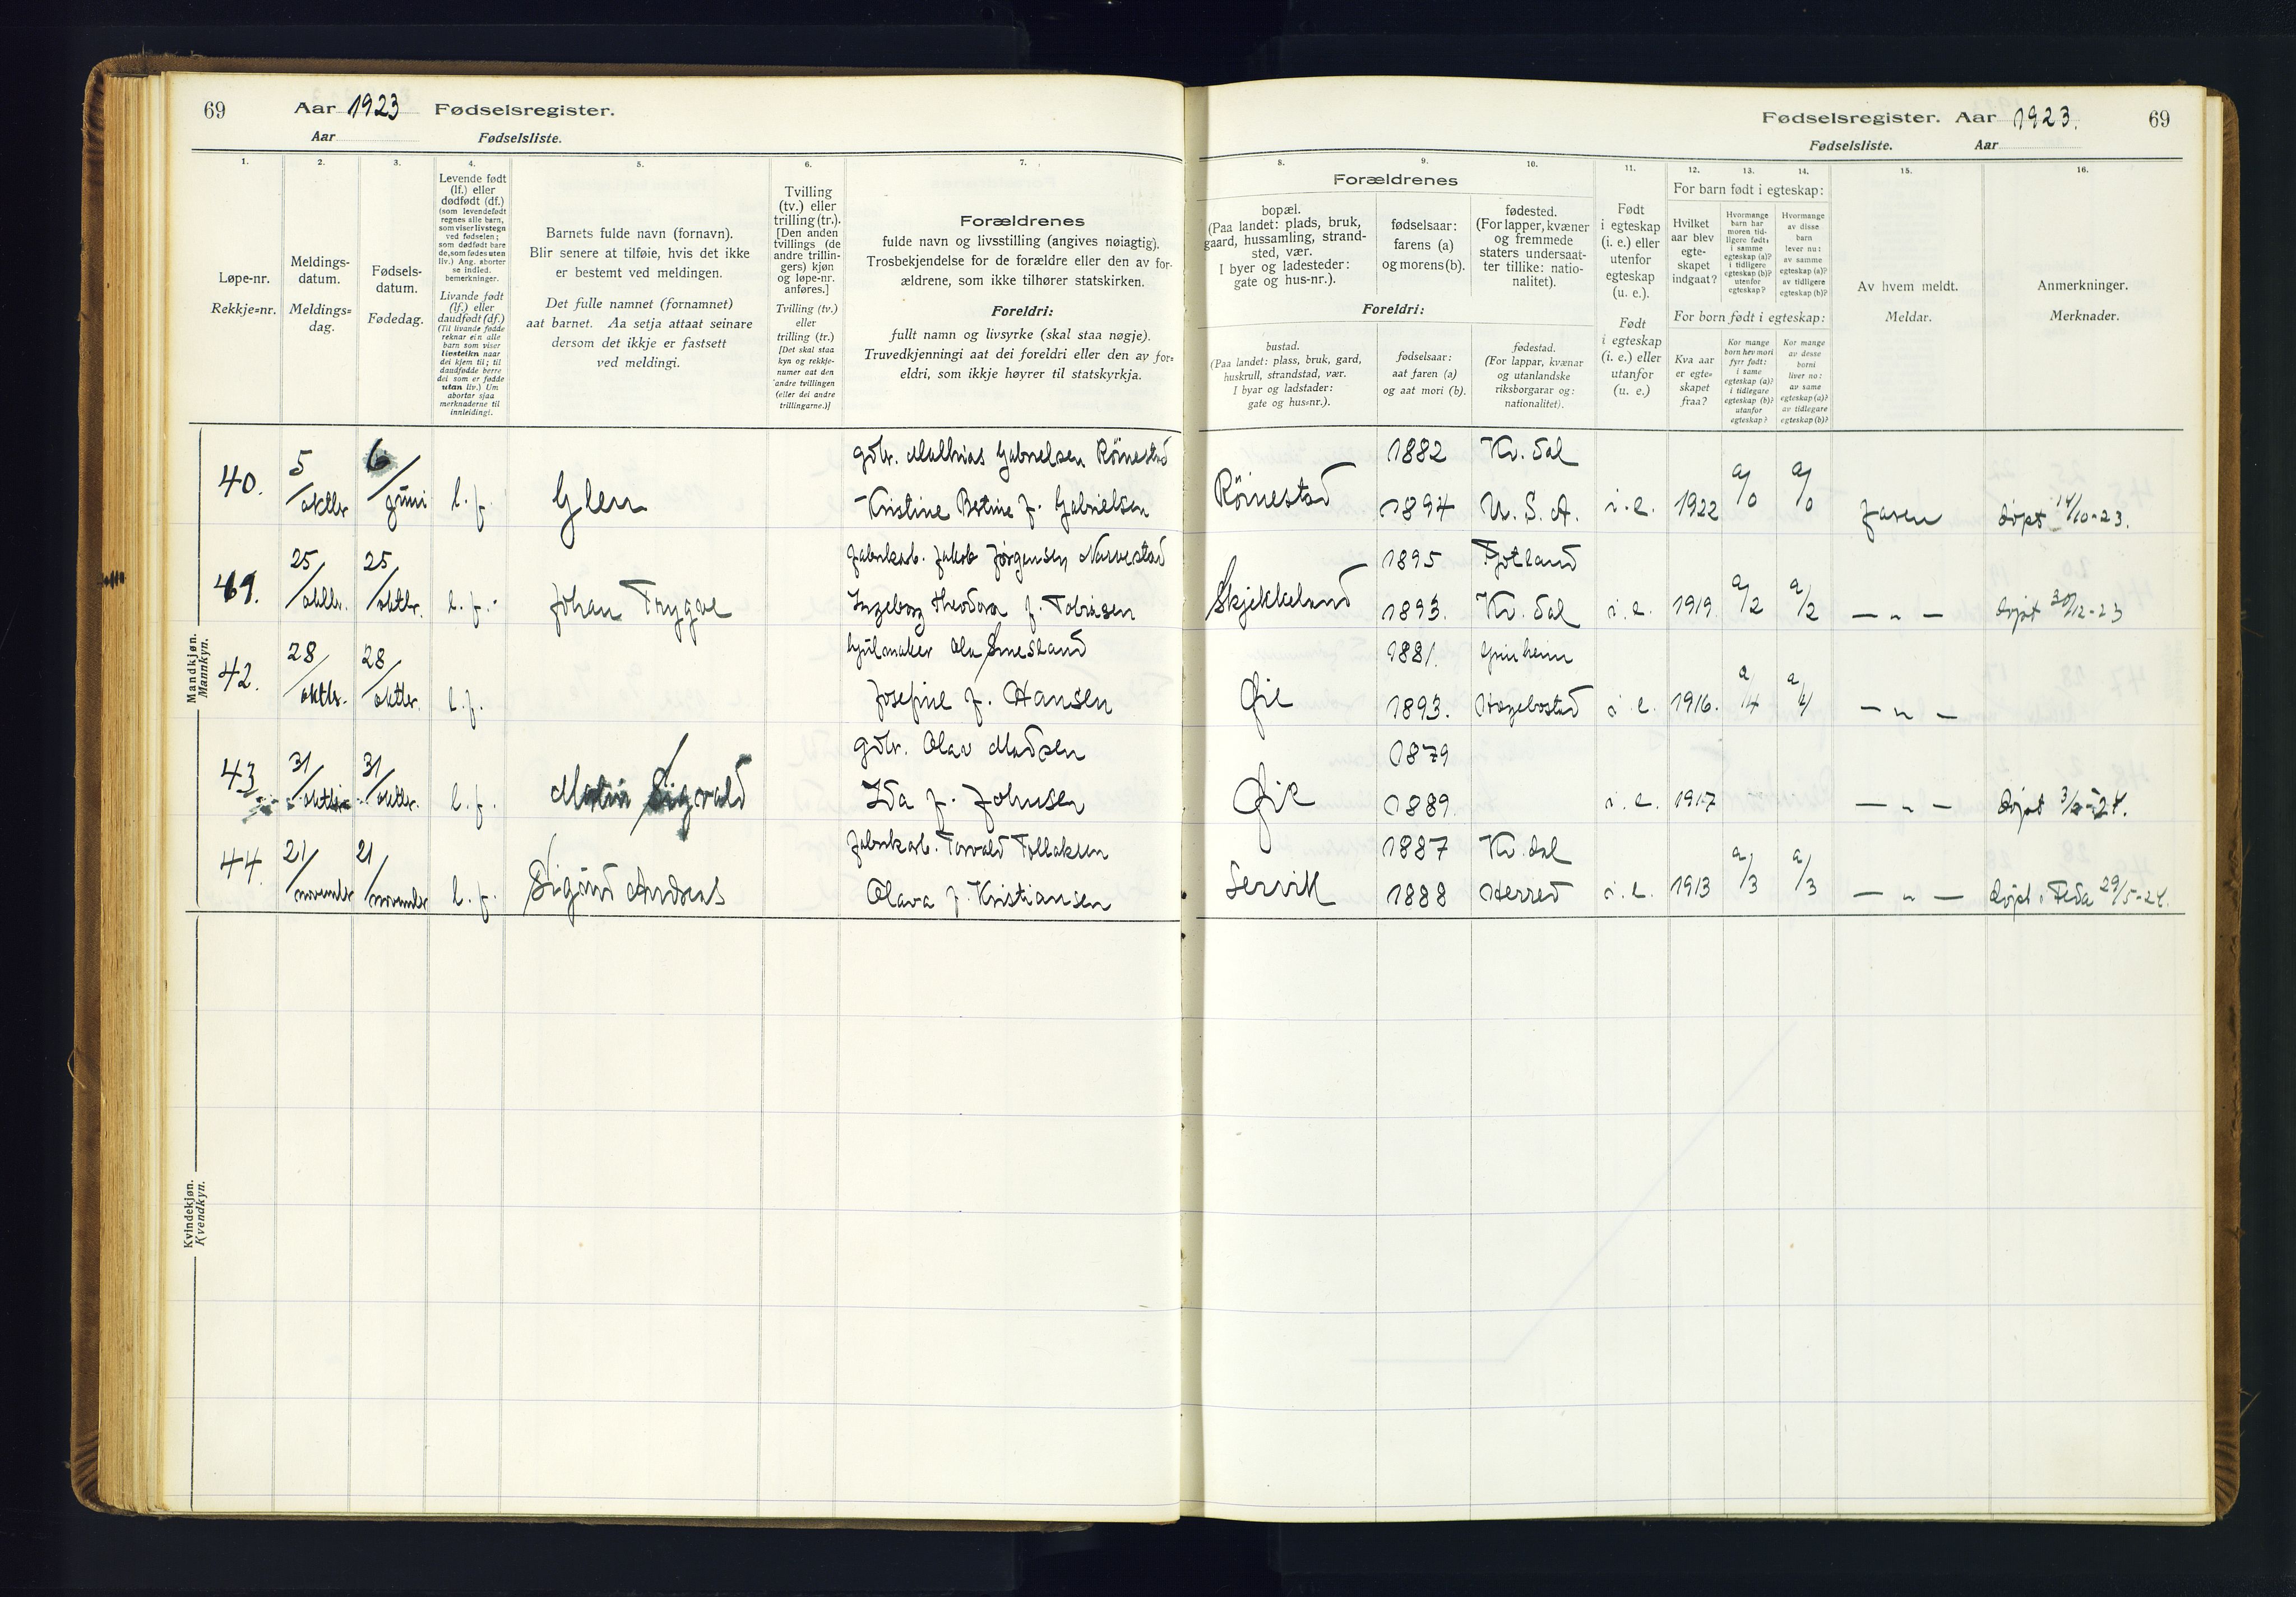 69 Aar 1923 Fødselsregister.
Aar Fødselsliste.
Fødselsregister. Aar 1923. 69
Fødselsliste. Aar
1. 2. 3. 4. 5. 6. 7.
Løpe-nr.
Rekkje=nr.
Meldings-
datum.
Meldings=
dag.
Fødsels-
datum.
Fødedag.
Levende født
(lf.) eller
dødfødt (df.)
(som levendefødt
regnes alle barn,
som viser livstegn
ved fødselen;
som dødfødt bare
de, som fødes uten
liv.) Ang. aborter
se indled.
bemerkninger.
Livande født
(lf.) eller
daudfødt (df.)
(Til livande fødde
reknar ein alle
barn som viser
livsteikn naar
dei kjem til; til
daudfødde berre
dei som er fødde
utan liv.) Um
abortar sjaa
merknaderne til
innleidingi.
Barnets fulde navn (fornavn).
Blir senere at tilføie, hvis det ikke
er bestemt ved meldingen.
Det fulle namnet (fornamnet)
aat barnet. Aa setja attaat seinare
dersom det ikkje er fastsett
ved meldingi.
Tvilling
(tv.) eller
trilling (tr.).
[Den anden
tvillings (de
andre trillin-
gers) kjøn
og løpe-nr.
anføres.]
Tvilling (tv.)
eller
trilling (tr.)
[Det skal staa
kyn og rekkje-
numer aat den
andre tvillingen
(eller dei andre
trillingarne.)]
Forældrenes
fulde navn og livsstilling (angives nøiagtig).
Trosbekjendelse for de forældre eller den av for-
ældrene, som ikke tilhører statskirken.
Foreldri:
fullt namn og livsyrke (skal staa nøgje).
Truvedkjenningi aat dei foreldri eller den av for=
eldri, som ikkje høyrer til statskyrkja.
8. 9. 10. 11. 12. 13. 14. 15. 16.
Forældrenes
bopæl.
(Paa landet: plads, bruk,
gaard, hussamling, strand-
sted, vær.
I byer og ladesteder:
gate og hus-nr.).
fødselsaar:
farens (a)
og morens (b).
fødested.
(For lapper, kvæner
og fremmede
staters undersaat-
ter tillike: natio-
nalitet).
Foreldri:
bustad.
(Paa landet: plass, bruk, gard,
huskrull, strandstad, vær.
I byar og ladstader:
gate og hus=nr.).
fødselsaar:
aat faren (a)
og aat mori (b).
fødestad.
(For lappar, kvænar
og utanlandske
riksborgarar og:
nationalitet).
Født
i egteskap
(i. e.) eller
utenfor
egteskap
(u. e.).
Født
i egteskap
(i. e.) eller
utanfor
(u. e.)
For barn født i egteskap:
Hvilket
aar blev
egte-
skapet
indgaat?
Hvormange
barn har
moren tid-
ligere født:
i samme
egteskap (a)?
i tidligere
egteskap (b)?
utenfor
egteskap?
Hvormange
av disse
barn
lever nu:
av samme
egteskap (a)?
av tidligere
egteskap (b)?
For born født i egteskap:
Kva aar
er egte=
skapet
fraa?
Kor mange
born hev mori
fyrr født:
i same
egteskap (a)?
i tidlegare
egteskap (b)?
utanfor
egteskap?
Kor mange
av desse
borni
liver no:
av same
egteskap (a)?
av tidlegare
egteskap (b)?
Av hvem meldt.
Meldar.
Anmerkninger.
Merknader.
Mandkjøn.
Mannkyn.
40. 5/oktbr 6/juni l. f. Glen gdbr. Mathias Gabrielsen Röinestad
Kristine Betine f. Gabrielsen
Röinestad 1882 Kv. dal
1894 U. S. A. i. e. 1922 a/0 a/0 faren døpt 14/10-23.
41. 25/oktbr. 25/oktbr. l. f. Johan Trygve fabrikarb. Jakob Jørgensen Narvestad
Ingeborg Theodora f. Tobiasen
Skjekkeland 1895 Fjotland
1893. Kv. dal i. e. 1919 a/2 a/2 — " — døpt 30/12-23
42. 28/oktbr. 28/oktbr. l. f. hjulmaker Ola Smesland
Josefine f. Hansen
Øie 1881. Grinheim
1893. Hægebostad i. e. 1916. a/4 a/4 — " —
43. 31/oktbr. 31/oktbr. l. f. Sigvald gdbr. Olav Madsen
Ida f. Johnsen
Øie 1879
1889. i. e. 1917 — " — døpt
44. 21/november 21/november l. f. Sigurd Andreas fabrikarb. Torvald Tollaksen
Olava f. Kristiansen
Servik 1887 Kv. dal
1888 Herred i. e. 1913 a/3 a/3 — " — døpt i Feda 29/5-24.
Kvindekjøn.
Kvendkyn.